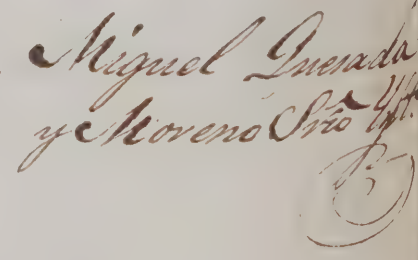 Miguel Quesada
y Moreno Srio